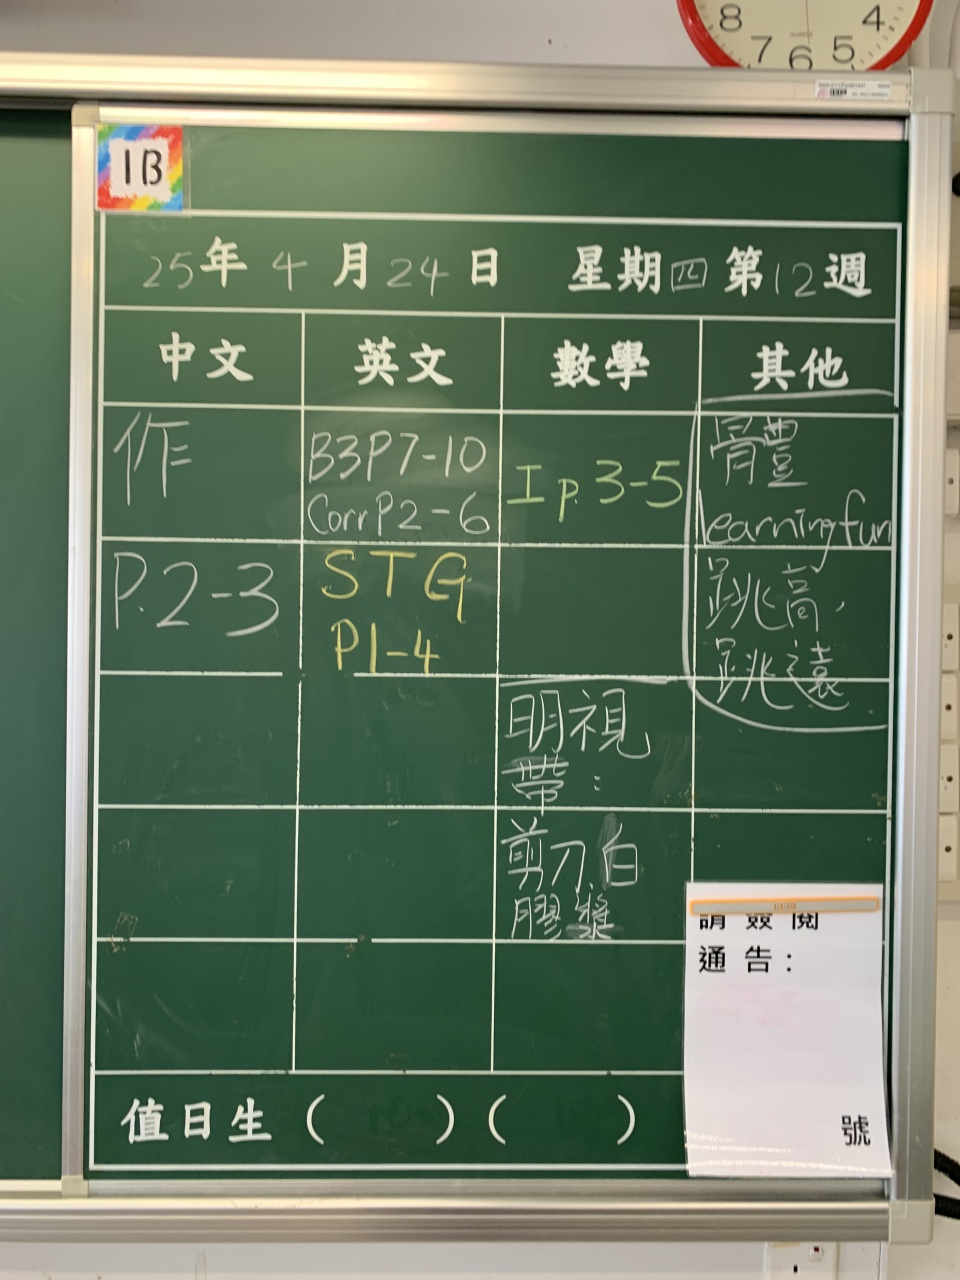 8 7 6 5 4
1B
25年4月24日 星期四第12週
中文 英文 數學 其他
作
P.2-3
B3P7-10
CorrP2-6
STG
P1-4
I p.3-5
體
learningfun
跳高,
跳遠
明視
帶:
剪刀白
膠漿
請簽閱
通告:
號
值日生 ( ) ( )